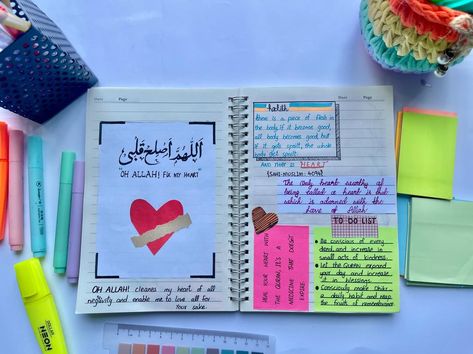 Date Page
اَللّٰهُمَّ اَصْلِحْ قَلْبِي
"OH ALLAH! FIX MY HEART"
OH ALLAH! cleanse my heart of all
negativity and enable me to love all for
Your sake.
Date Page
hadith
there is a piece of flesh in
the body if it becomes good,
all body becomes good but
if it gets spoilt, the whole
body get spoilt.
AND THAT IS "HEART"
The only heart worthy of
being called a heart is that
which is adorned with the
love of Allah
HEAL YOUR HEART WITH
THE QURAN, IT'S A
MEDICINE THAT DOESN'T
EXPIRE.
TO DO LIST
Be conscious of every
deed, and increase in
small acts of kindness.
Let the Quran expand
your day and increase
it in blessings
Consciously make Dhikr
a daily habit and reap
the fruits of remembrance
NEON